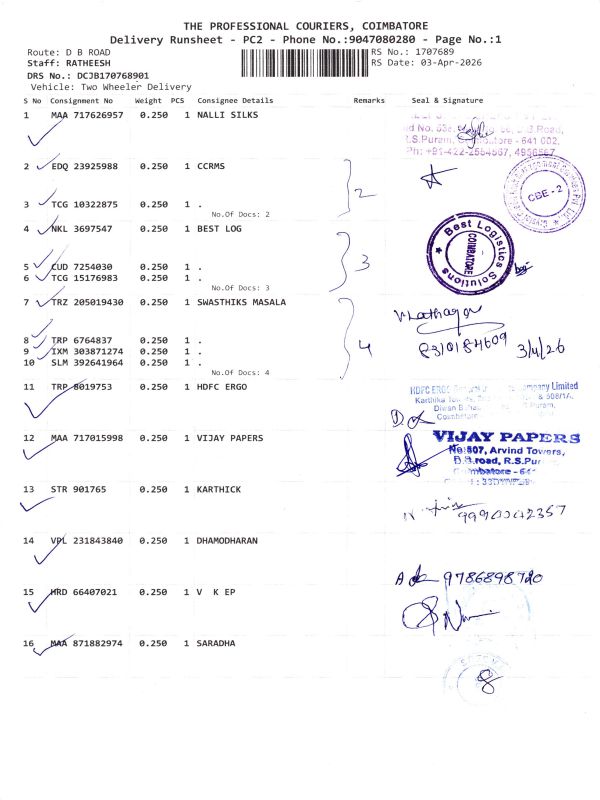 THE PROFESSIONAL COURIERS, COIMBATORE
Delivery Runsheet - PC2 - Phone No.:9047080280 - Page No.:1
Route: D B ROAD
RS No.: 1707689
Staff: RATHEESH
RS Date: 03-Apr-2026
DRS No.: DCJB170768901
Vehicle: Two Wheeler Delivery
S No Consignment No Weight PCS Consignee Details Remarks Seal & Signature
1 MAA 717626957 0.250 1 NALLI SILKS
R.S.Puram, Coimbatore - 641 002.
2 EDQ 23925988 0.250 1 CCRMS
2
CBE - 2
3 TCG 10322875 0.250 1 .
No.Of Docs: 2
4 NKL 3697547 0.250 1 BEST LOG
Best Logistics Solutions
COIMBATORE
3
5 CUD 7254030 0.250 1 .
6 TCG 15176983 0.250 1 .
No.Of Docs: 3
7 TRZ 205019430 0.250 1 SWASTHIKS MASALA
4
8310184609 3/4/26
8 TRP 6764837 0.250 1 .
9 IXM 303871274 0.250 1 .
10 SLM 392641964 0.250 1 .
No.Of Docs: 4
11 TRP 8019753 0.250 1 HDFC ERGO
HDFC ERGO Company Limited
12 MAA 717015998 0.250 1 VIJAY PAPERS
VIJAY PAPERS
No:607, Arvind Towers,
D.B.road, R.S.Pur
13 STR 901765 0.250 1 KARTHICK
14 VPL 231843840 0.250 1 DHAMODHARAN
9786898720
15 HRD 66407021 0.250 1 V K EP
16 MAA 871882974 0.250 1 SARADHA